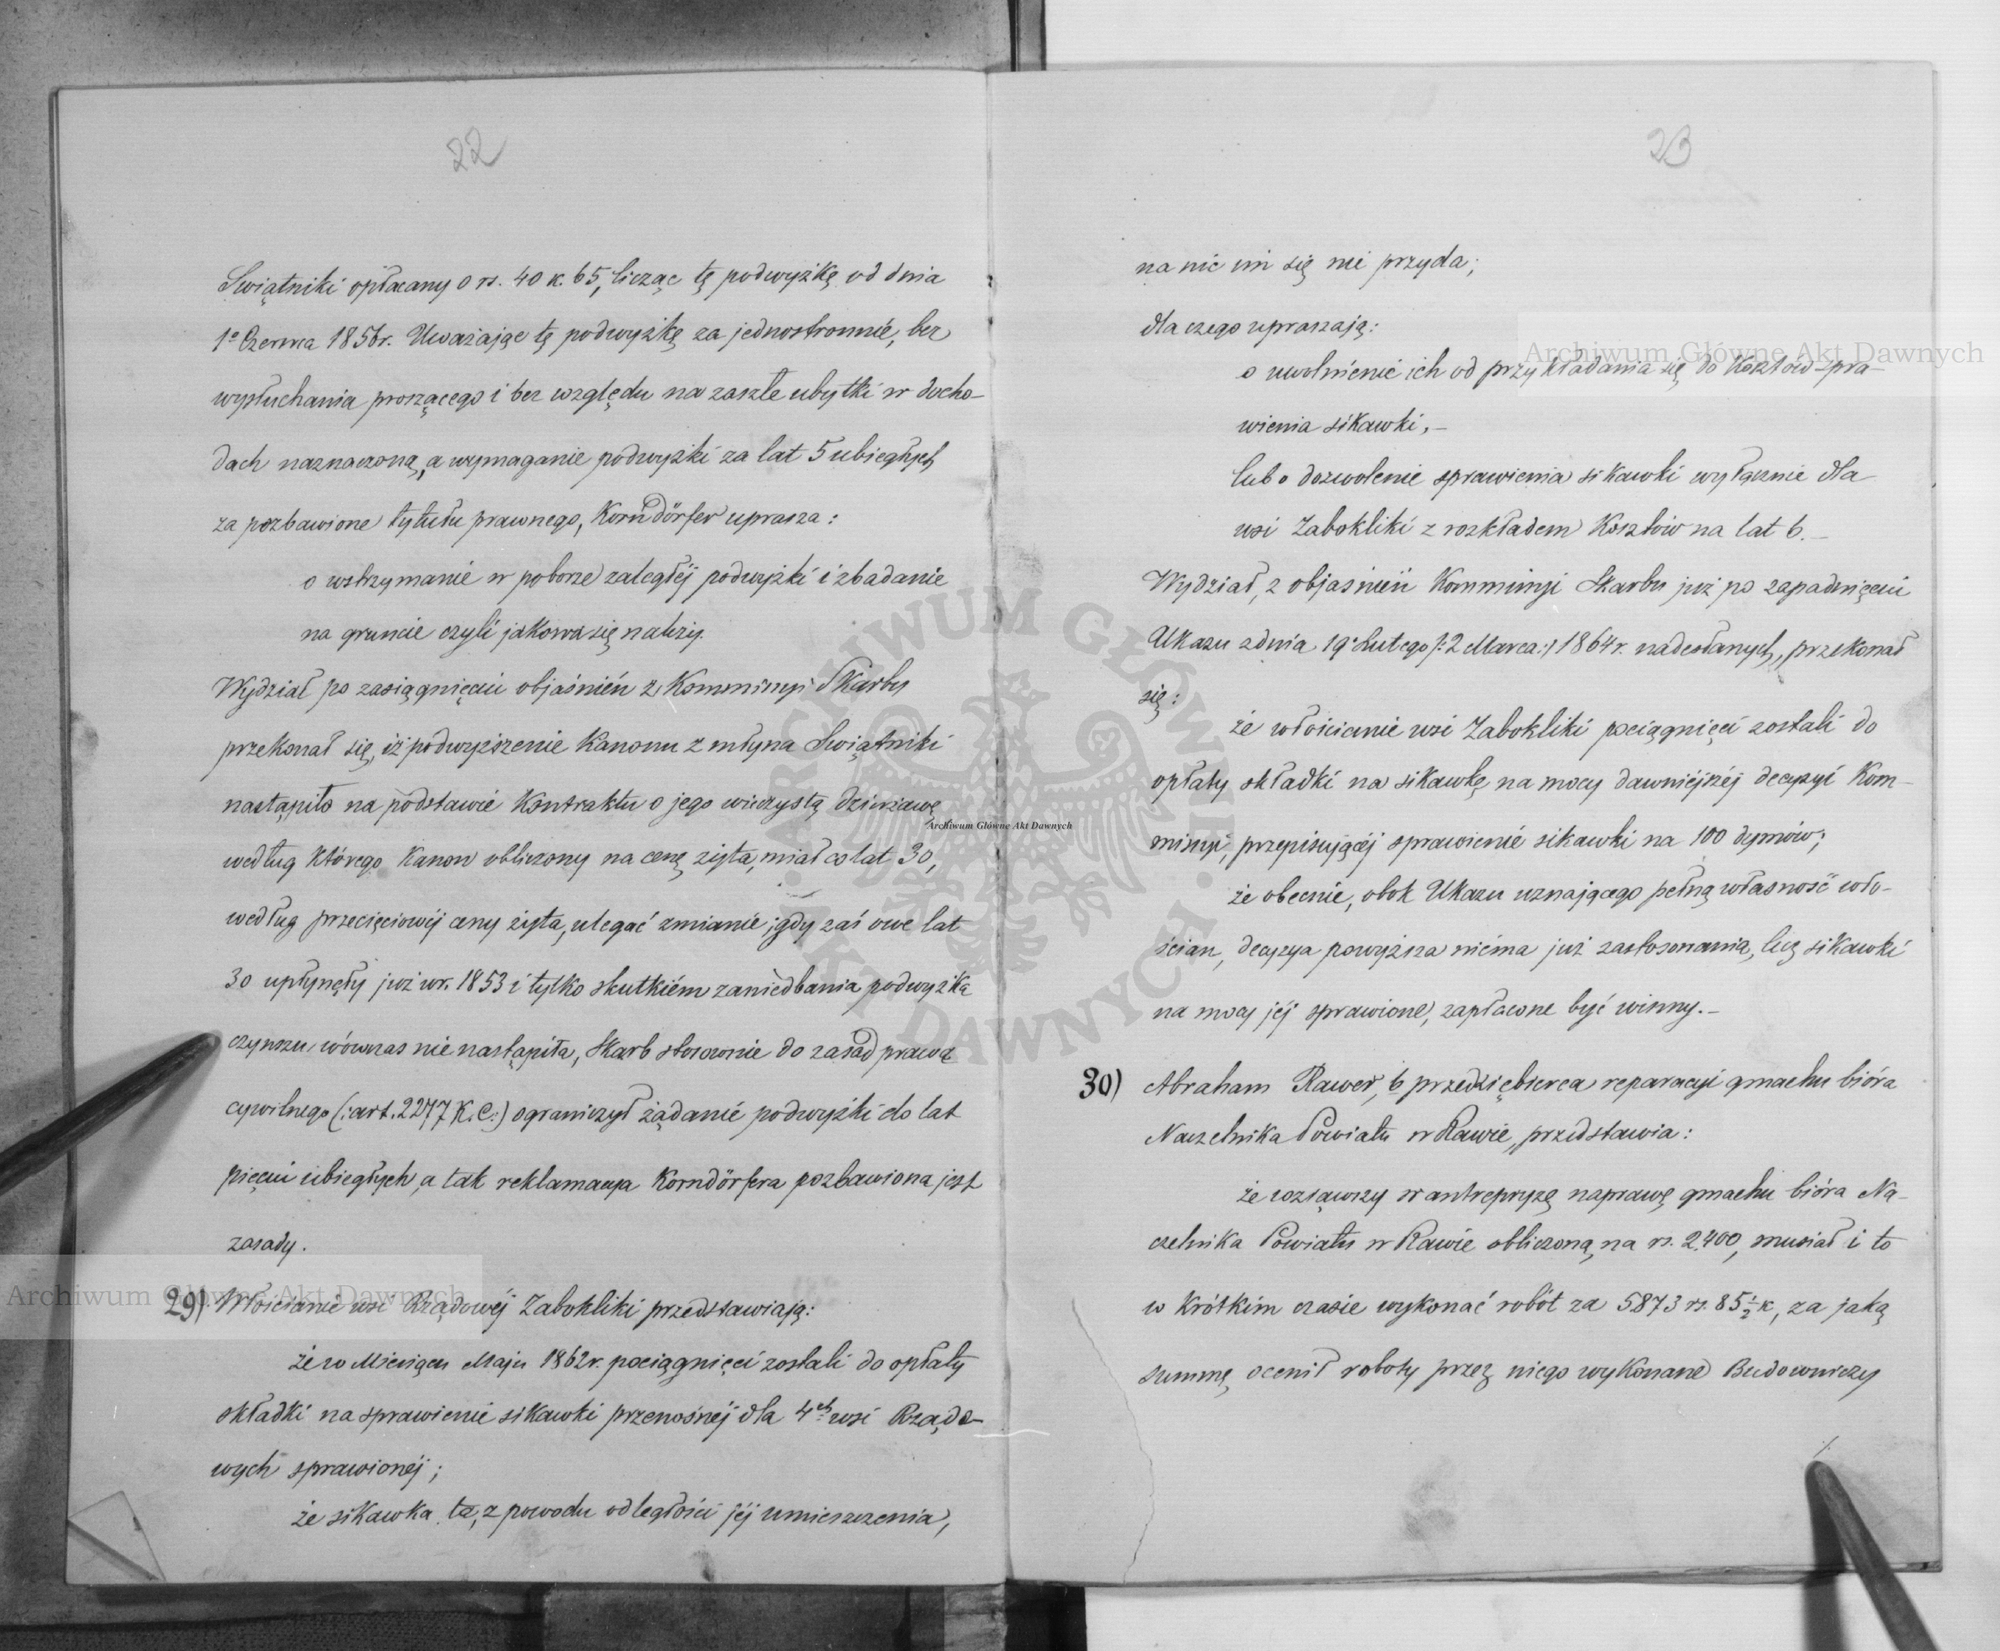 22
Swiątniki opłacany o rs. 40 k. 65, licząc tę podwyżkę od dnia
1o Czerwca 1856r. Uważając tę podwyżkę za jednostronnie, bez
wysłuchania proszącego i bez względu na zaszłe ubytki w docho-
dach naznaczoną, a wymaganie podwyżki za lat 5 ubiegłych
za pozbawione tytułu prawnego, Korndörfer uprasza:
o wstrzymanie w poborze zaległéj podwyżki i zbadanie
na gruncie czyli jakowa się należy.
Wydział po zasiągnięciu objaśnień z Kommissyi Skarbu
przekonał się, iż podwyższenie Kanonu z młyna Swiątniki
nastąpiło na podstawie Kontraktu o jego wieczystą dzierżawę,
według którego Kanon obliczony na cenę żyta, miał co lat 30,
według przecięciowéj ceny żyta, ulegać zmianie; gdy zaś owe lat
30 upłynęły już w r. 1853 i tylko skutkiém zaniedbania podwyżka
czynszu wówczas nie nastąpiła, Skarb stosownie do zasad prawa
cywilnego (: art. 2277 K. C.:) ograniczył żądanie podwyżki do lat
pięciu ubiegłych, a tak reklamacya Korndörfera pozbawiona jest
zasady.
29) Włościanie wsi Rządowéj Zabokliki przedstawiają:
że w Miesiącu Maju 1862 r. pociągnięci zostali do opłaty
składki na sprawienie sikawki przenośnéj dla 4ch wsi Rządo-
wych sprawionéj;
że sikawka ta, z powodu odległości jéj umieszczenia,
23
na nic im się nie przyda;
dla czego upraszają:
o uwolnienie ich od przykładania się do Kosztów spra-
wienia sikawki,-
lub o dozwolenie sprawienia sikawki wyłącznie dla
wsi Zabokliki z rozkładem Kosztów na lat 6.-
Wydział, z objaśnień Kommissyi Skarbu już po zapadnięciu
Ukazu z dnia 19 Lutego /: 2 Marca :/ 1864 r. nadesłanych, przekonał
się:
że włościanie wsi Zabokliki pociągnięci zostali do
opłaty składki na sikawkę na mocy dawniejszéj decyzyi Kom-
missyi, przepisującéj sprawienie sikawki na 100 dymów;
że obecnie, obok Ukazu uznającego pełną własność wło-
ścian, decyzya powyższa niema już zastosowania, lecz sikawki
na mocy jéj sprawione, zapłacone być winny.-
30) Abraham Rawer, b. przedsiębierca reparacyi gmachu bióra
Naczelnika Powiatu w Rawie, przedstawia:
że wziąwszy w antrepryzę naprawę gmachu bióra Na-
czelnika Powiatu w Rawie obliczoną na rs. 2,400, musiał i to
w krótkim czasie wykonać robót za 5873 rs. 85 1/2 k, za jaką
summę ocenił roboty przez niego wykonane Budowniczy
Archiwum Główne Akt Dawnych
Archiwum Główne Akt Dawnych
Archiwum Główne Akt Dawnych
ARCHIWUM GŁÓWNE AKT DAWNYCH